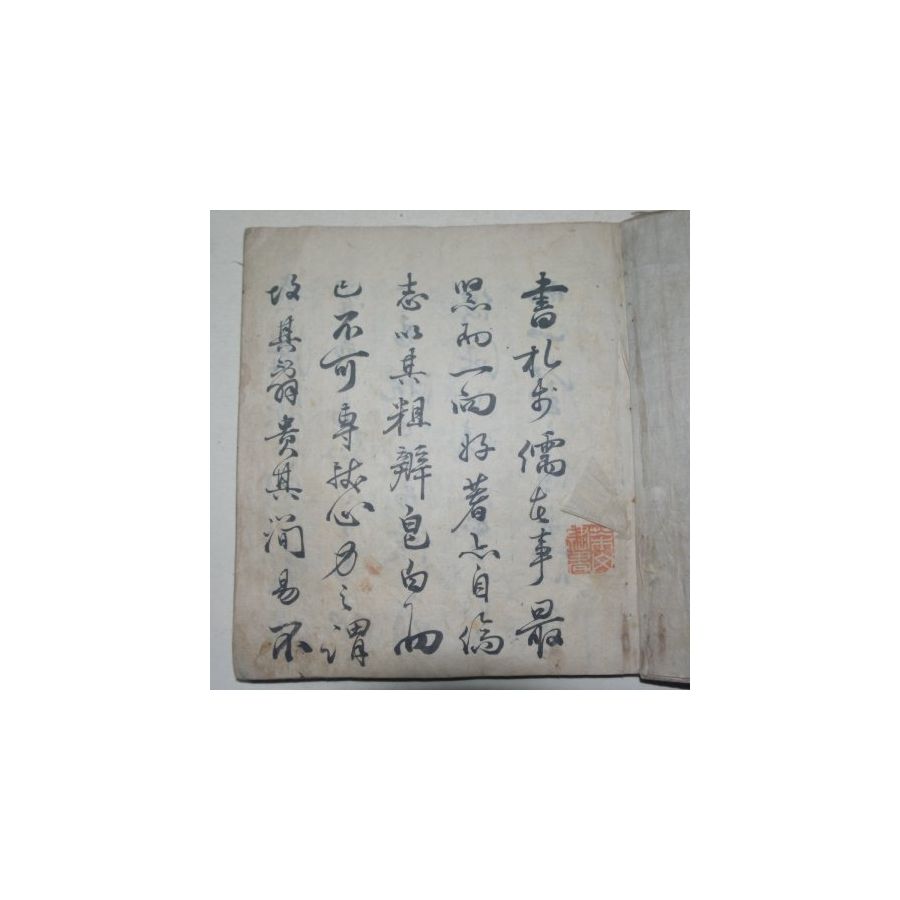 書札於儒者事最
而一向好著亦自
志以其粗辨皂白而
已不可專心力之謂
故其貴其簡易不